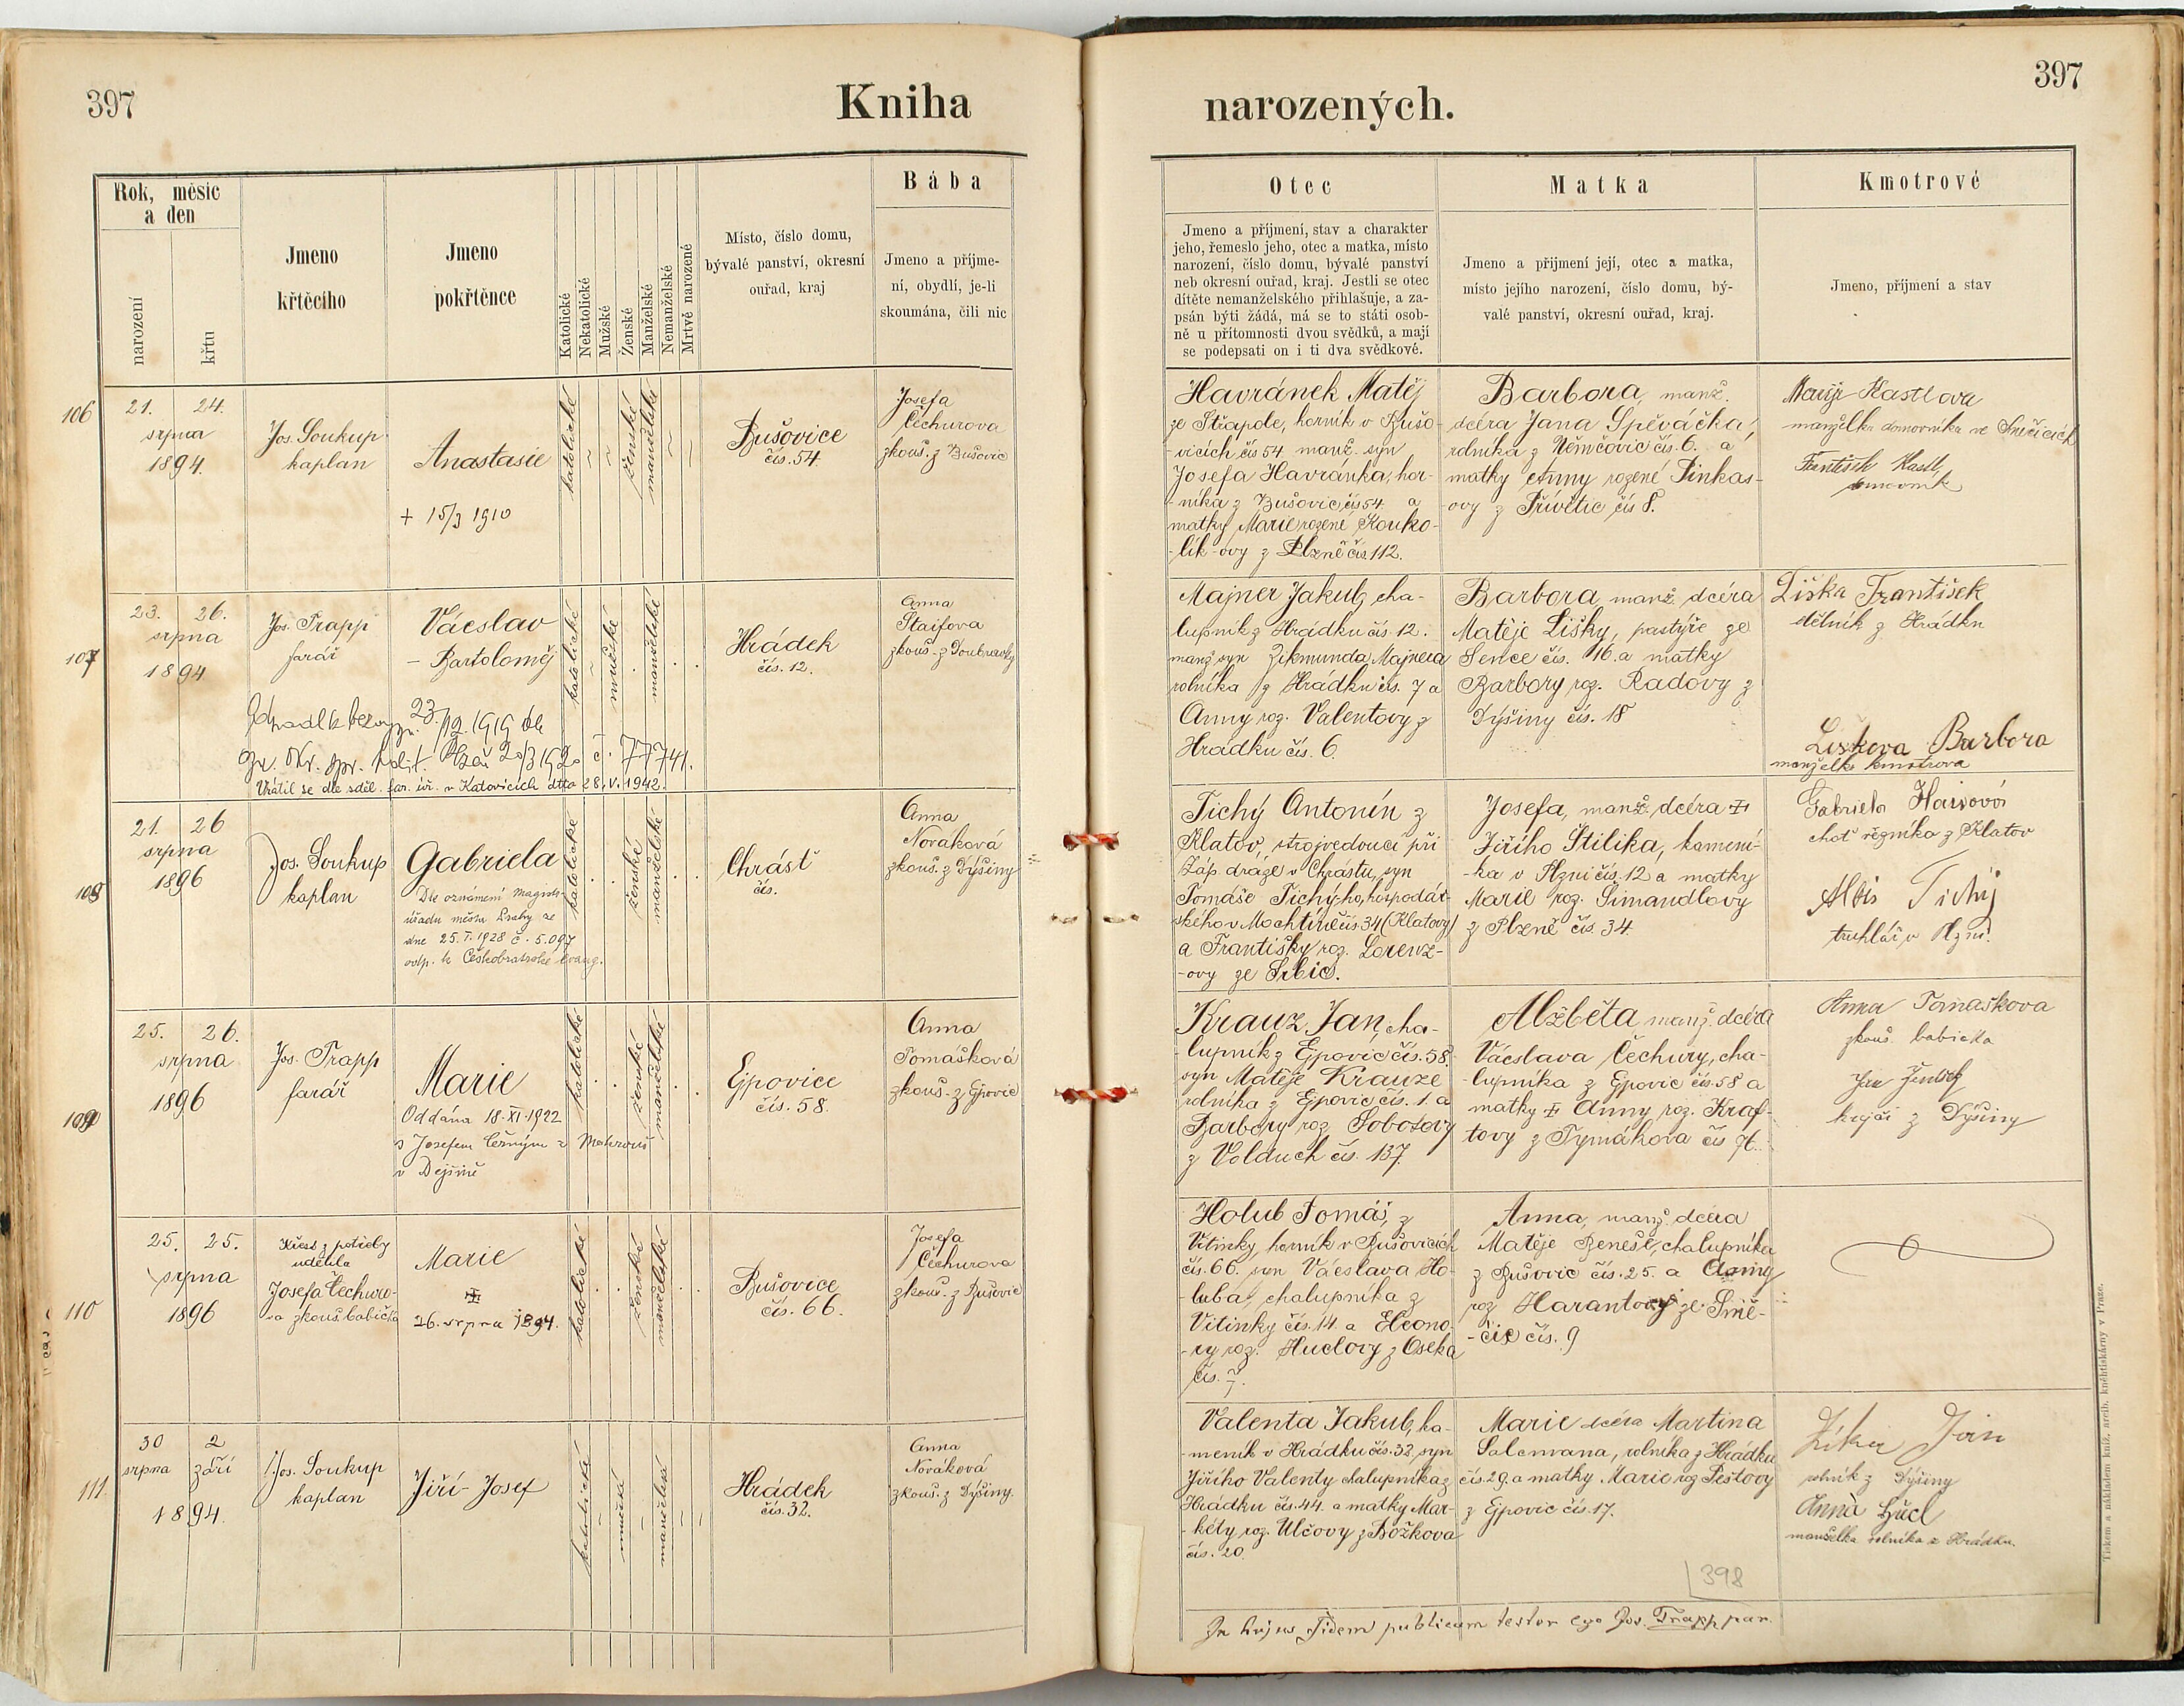 397
Kniha
narozených.
397
Rok, měsíc
a den
narození
křtu
Jmeno
křtěcího
Jmeno
pokřtěnce
Katolické
Nekatolické
Mužské
Ženské
Manželské
Nemanželské
Mrtvě narozené
Místo, číslo domu,
bývalé panství, okresní
ouřad, kraj
Bába
Jmeno a příjme-
ní, obydlí, je-li
skoumána, čili nic
Otec
Jmeno a příjmení, stav a charakter
jeho, řemeslo jeho, otec a matka, místo
narození, číslo domu, bývalé panství
neb okresní ouřad, kraj. Jestli se otec
dítěte nemanželského přihlašuje, a za-
psán býti žádá, má se to státi osob-
ně u přítomnosti dvou svědků, a mají
se podepsati on i ti dva svědkové.
Matka
Jmeno a přijmení její, otec a matka,
místo jejího narození, číslo domu, bý-
valé panství, okresní ouřad, kraj.
Kmotrové
Jmeno, příjmení a stav
106
21. 24.
srpna
1894.
Jos. Soukup
kaplan
Anastasie
+ 15/3 1910
katolické
ženské
manželské
Bušovice
čís. 54.
Josefa
Čechurova
zkouš. z Bušovic
Havránek Matěj
ze Střapole, horník v Bušo-
-vicích čís 54 manž. syn
Josefa Havránka, hor-
-níka z Bušovic čís 54 a
matky Marie rozené Kouko-
-lík-ovy z Plzně čís 112.
Barbora, manž.
dcéra Jana Spěváčka,
rolníka z Němčovic čís. 6. a
matky Anny rozené Pinkas-
-ovy z Přívětic čís 8.
Hastlova
manželka domovníka ve Směčicích
Hastl
domovník
107
23. 26.
srpna
1894
Jos. Trapp
farář
Václav
- Bartoloměj
katolické
mužské
manželské
Hrádek
čís. 12.
Anna
Štaifova
zkouš. z Doubravky
23./12. 1919 dle
Plzeň 20/3 1920 č. 77741.
Vrátil se dle sděl. far. úř. v Katovicích dtto 28. V. 1942.
Majner Jakub, cha-
lupník z Hrádku čís. 12.
manž syn Zikmunda Majnera
rolníka z Hrádku čís. 7 a
Anny roz. Valentovy z
Hrádku čís. 6.
Barbora manž. dcéra
Matěje Lišky, pastýře ze
Sence čís. 16. a matky
Barbory roz. Radovy z
Dýšiny čís. 18
Liška František
dělník z Hrádku
Liškova Barbora
manželka kmotrova
108
21. 26
srpna
1896
Jos. Soukup
kaplan
Gabriela
Dle oznámení magistr.
úřadu města Prahy ze
dne 25. I. 1928 č. 5.097
odp. k Českobratrské evang.
katolické
ženské
manželské
Chrást
čís.
Anna
Nováková
zkouš. z Dýšiny
Tichý Antonín z
Klatov, strojvedoucí při
Záp. dráze v Chrástu, syn
Tomáše Tichý-ho, hospodář-
ského v Mochtíně čís. 34 (Klatovy)
a Františky roz. Lorenz-
-ovy ze Srbic.
Josefa, manž. dcéra
Jiřího Štilika, kamení-
-ka v Plzni čís. 12 a matky
Marie roz. Šimandlovy
z Plzně čís. 34.
Gabriela
choť řezníka z Klatov
Alois Tichý
truhlář v Plzni.
109
25. 26.
srpna
1896
Jos. Trapp
farář
Marie
Oddána 18. XI. 1922
s Josefem Černým z
v Dejšině
katolické
ženské
manželské
Ejpovice
čís. 58.
Anna
Tomášková
zkouš. z Ejpovic
Krauz Jan, cha-
lupník z Ejpovic čís. 58.
syn Matěje Krauze
rolníka z Ejpovic čís. 1. a
Barbory roz Sobotovy
z Volduch čís. 137.
Alžběta manž. dcéra
Václava Čechury, cha-
-lupníka z Ejpovic čís 58 a
matky Anny, roz. Kraf-
tovy z Tymákova čís
Anna Tomaškova
zkouš. babička
Jan
krejčí z Dýšiny
110
25. 25.
srpna
1896
Křest z potřeby
udělila
Josefa Čechuro-
va zkouš. babička
Marie
26. srpna 1894.
katolické
ženské
manželské
Bušovice
čís. 66.
Josefa
Čechurova
zkouš. z Bušovic
Holub Tomáš, z
Vitinky, horník v Bušovicích
čís. 66. syn Václava Ho-
-luba, chalupníka z
Vitinky čís. 14. a Eleono-
-ry roz. Hudovy z Oseka
čís. 7.
Anna, manž. dcéra
Matěje Beneše, chalupníka
z Bušovic čís. 25. a Anny
roz Harantovy ze Smě-
-čic čís. 9
111.
30 2
srpna září
1894.
Jos. Soukup
kaplan
Jiří-Josef
katolické
mužské
manželské
Hrádek
čís. 32.
Anna
Nováková
zkouš. z Dýšiny.
Valenta Jakub, ka-
-meník v Hrádku čís. 32, syn
Jiřího Valenty chalupníka z
Hrádku čís. 44. a matky Mar-
-kéty roz. Ulčovy z Božkova
čís. 20.
Marie dcéra Martina
Salcmana, rolníka z Hrádku
čís. 29. a matky Marie roz Peštovy
z Ejpovic čís. 17.
Jan
rolník z Dýšiny
Anna
manželka rolníka z Hrádku.
398
In hujus fidem publicam testor ego Jos. Trapp, par.
Tiskem a nákladem kníž. arcib. kněhtiskárny v Praze.